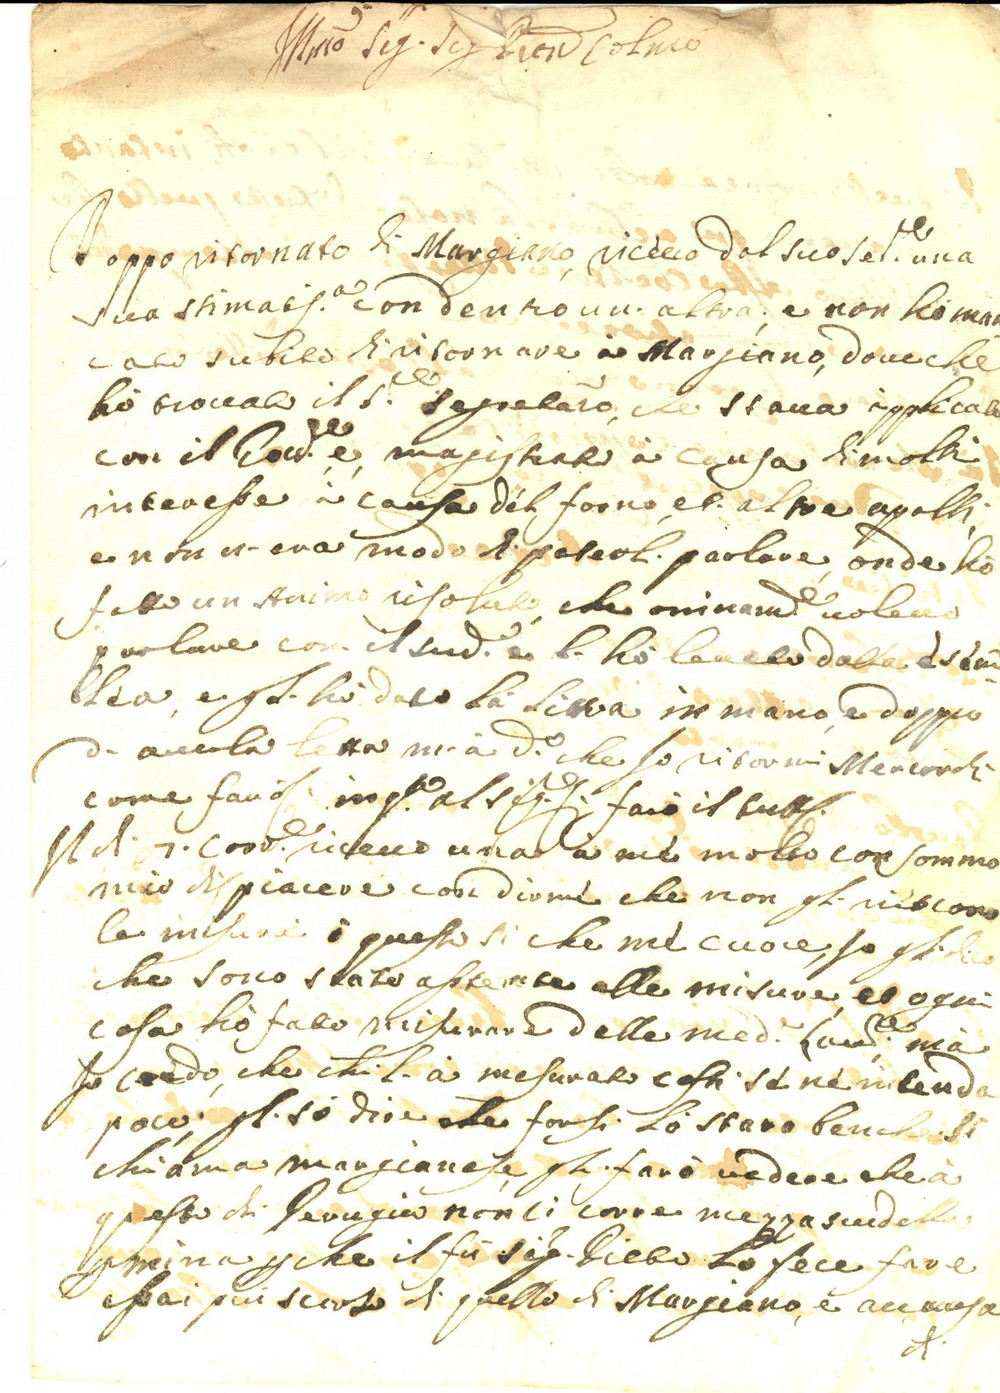 Ill.mo Sig. Sig. Pron Colmo
Doppo ritornato di Margiano, ricevo dal suo ser.re una
sua stimatis.a con dentro un. altra, e non hò man
cato subito di ritornare à Margiano, dove che
hò trovato il S.re Segretario, che stava applicato
con il Gov.re, e, magistrato à causa di molti
interesse à causa del forno, et altre apalti,
e non u. era modo di poterl. parlare, onde hò
fatto un Animo risoluto, che oninam.e volevo
parlare con il sud.o e l. hò levato dalla asem
blea, e gl. hò dato la littra in mano, e doppo
d. averla letta m. à d.o che io ritorni Mercordi
come farò, in q.o al Sig. faró il tutto.
Il di 7. Cor.e ricevo una à me molto con sommo
mio dispiacere con dirmi che non gl. riescono
le misure è questo si che mé cuoce, Io gl. dico
che sono stato assente alle misure, et ogni
cosa hò fatto misurare delle med. mà
Io credo, che chi l. à mesurato costi sé né intenda
poco, gl. só dire che forsi lo staro benche si
chiama margianese, gl. farò vedere che à
questo di Perugia non ci corre mezza scudella
p mina p che il fù Sig. Lo fece fare
assai più scarso di quello di Margiano, e accausa
di